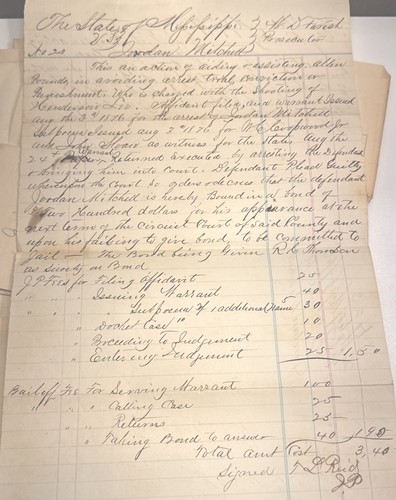 The State of Mississippi } W D Parish
Vs } Prosecutor
No 20 Jordan Mitchell
This an action of aiding or assisting Allen
Pounds, in avoiding arrest, trial, conviction or
Punishment. Who is charged with the Shooting of
Henderson Affidavit filed and warrant Issued
Aug the 3rd 1876 for the arrest of Jordan Mitchell
Subpoena Issued Aug 3rd 1876 for
and as witness for the State, Aug the
Warrant Returned executed by arresting the Defendant
& bringing him into Court. Defendant Plead Guilty
whereupon the Court so orders & decrees that the defendant
Jordan Mitchell is hereby Bound in a bond of
Two Hundred dollars for his appearance at the
next term of the Circuit Court of Said County and
upon his failing to give bond, to be committed to
Jail — The Bond being Given R L Thomson
as surety on Bond
J P Fees for Filing Affidavit 25
" " " Issuing Warrant 40
" " " Subpoena & 1 additional Name 30
" " " Docket Case 10
" " " Proceeding to Judgement 20
" " " Entering Judgement 25 1,50
Bailiff Fees For Serving Warrant 1 00
" " " Calling Case 25
" " " Returns 25
" " " Taking Bond to answer 40 1 90
Total Amt Cost 3,40
Signed T L Reid
J P